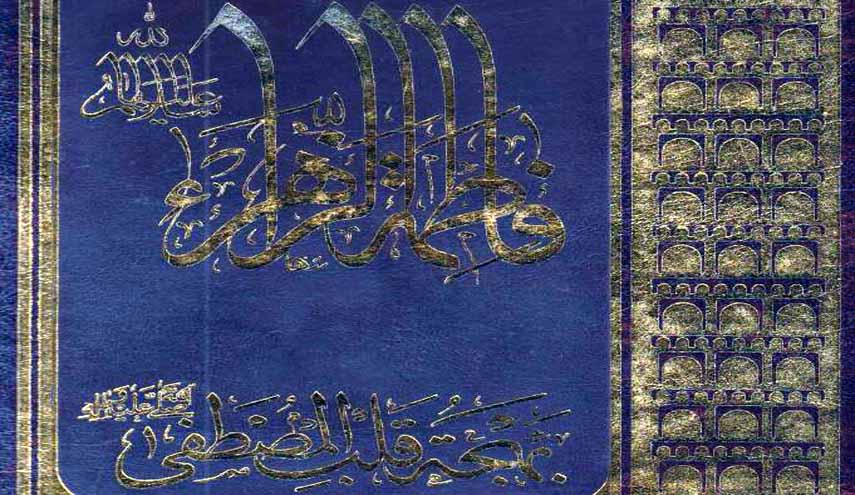 فاطمة الزهراء
سلام الله عليها
بهجة قلب المصطفى
صلى الله عليه وآله